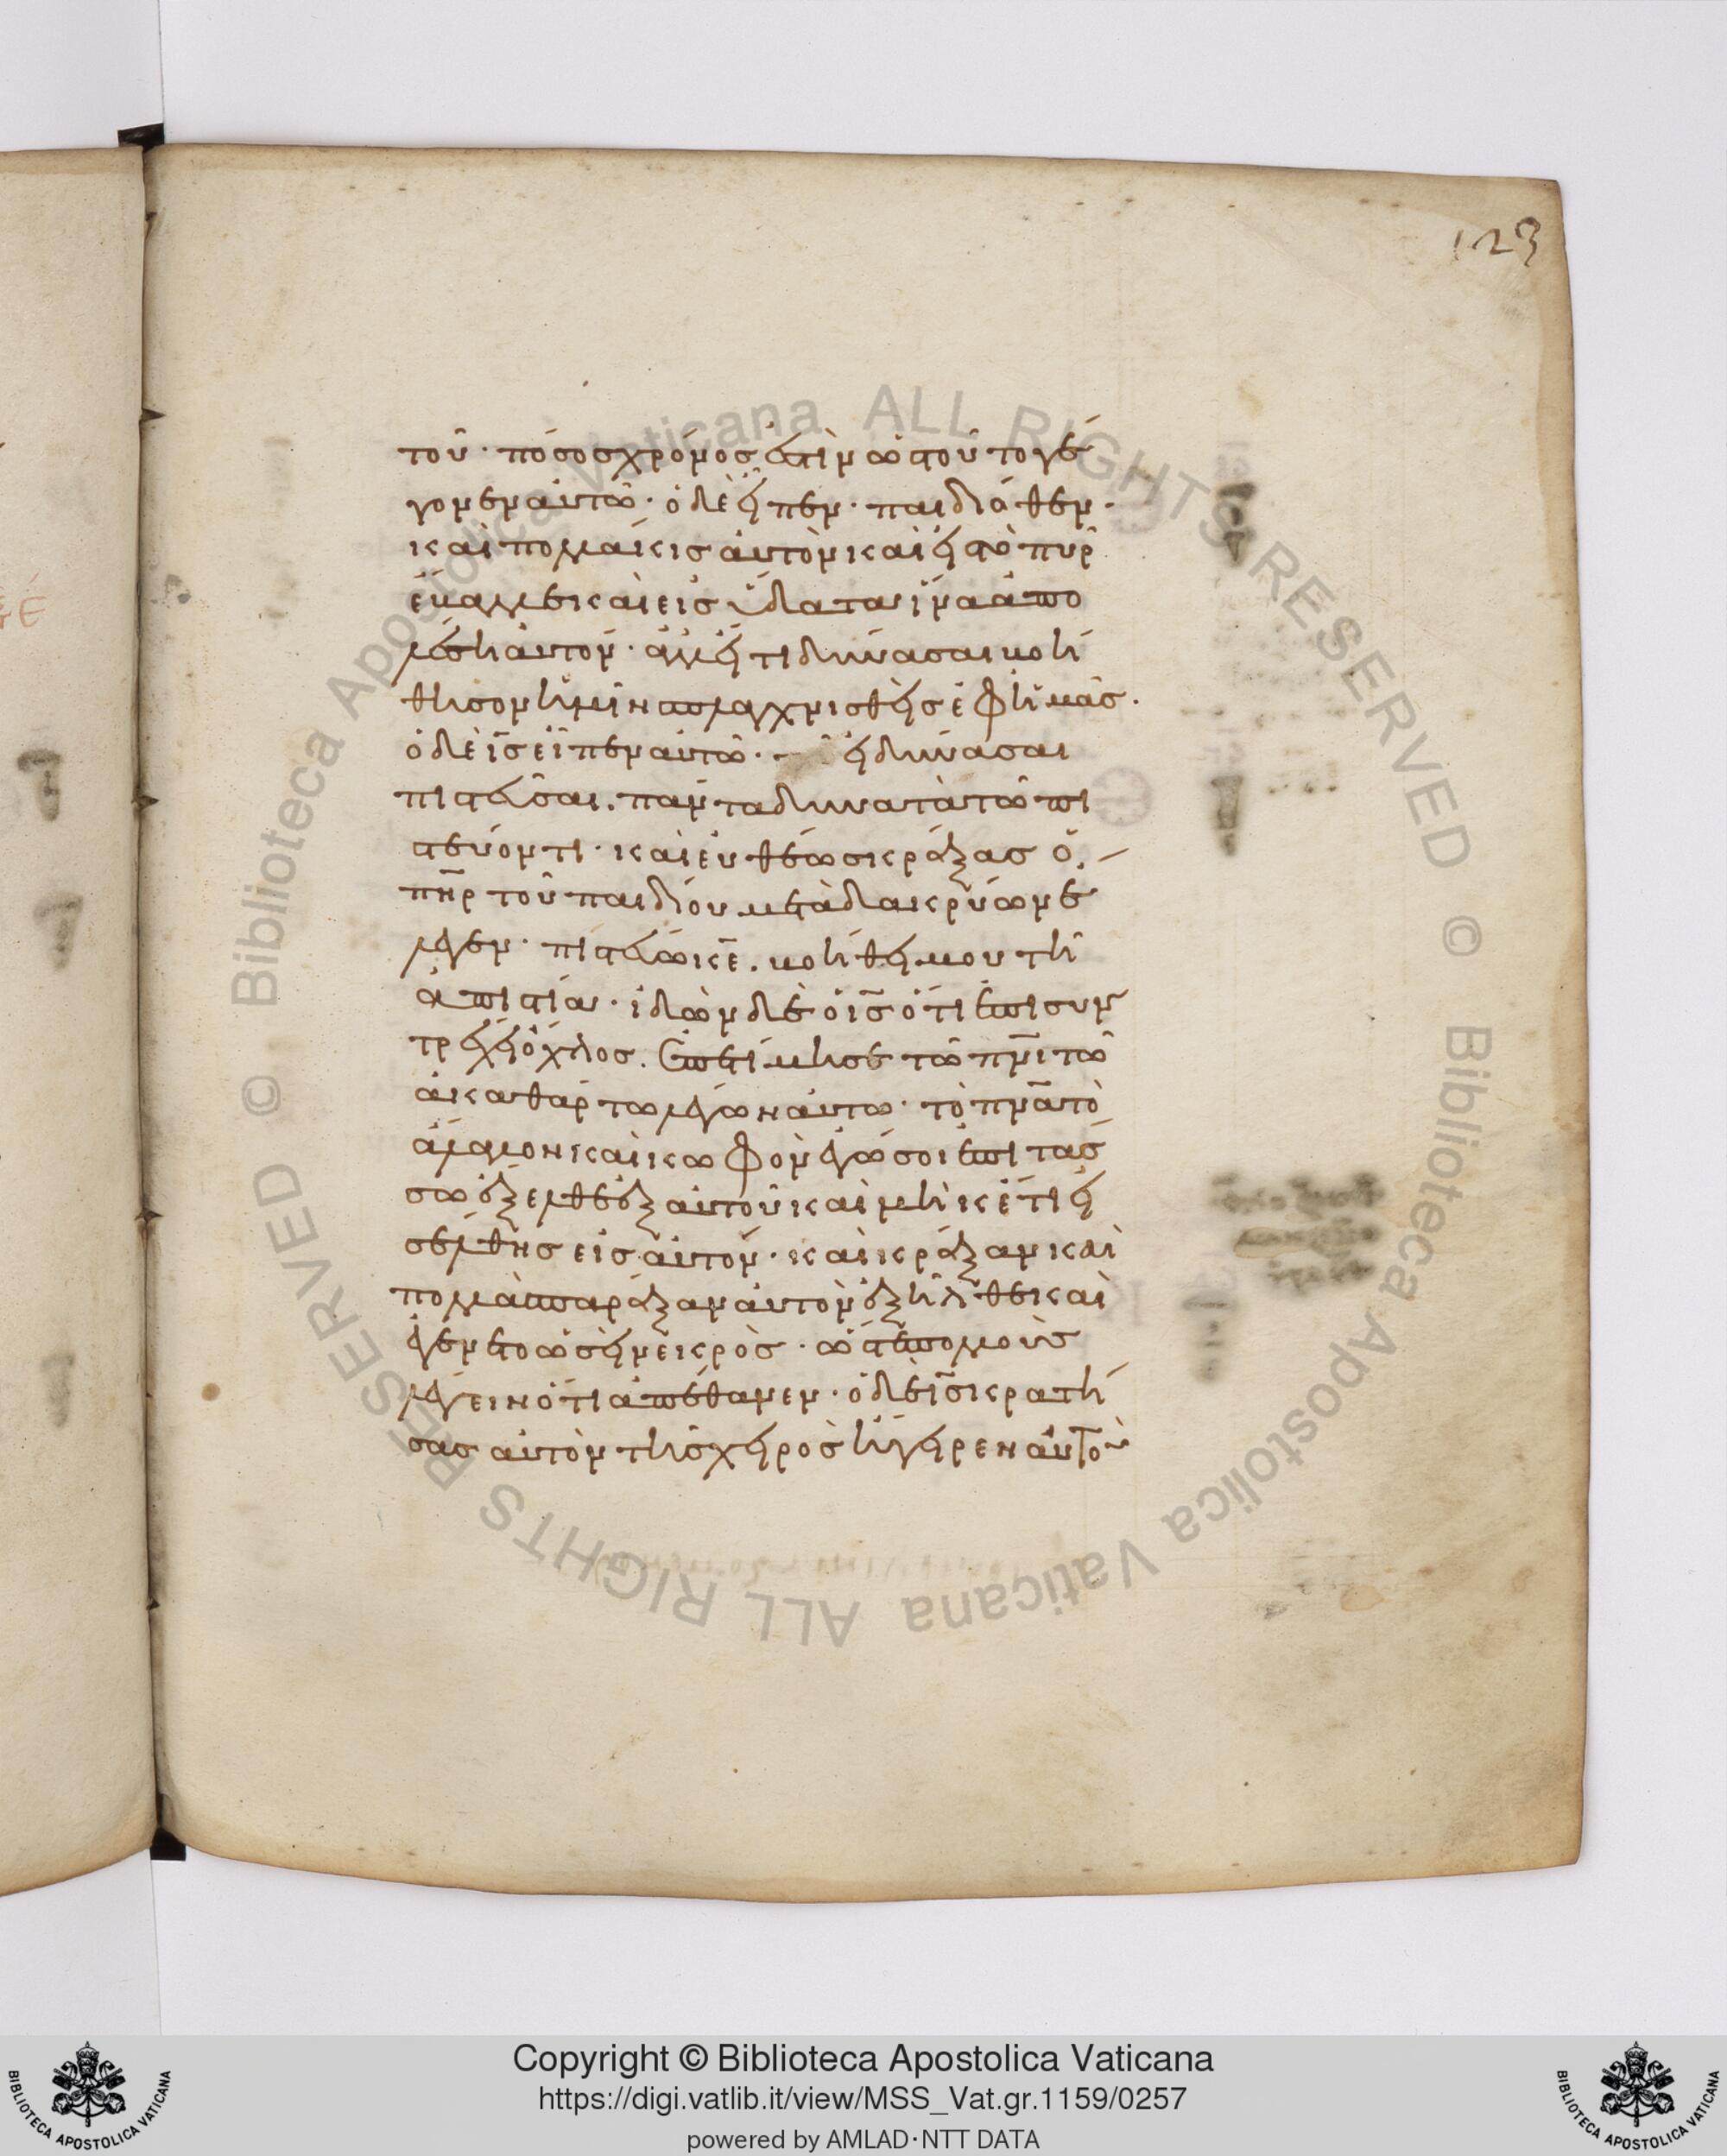 123
τοῦ · πόσος χρόνος ἐστὶν ὡς τοῦτο γέ
γονεν αὐτῶ · ὁ δὲ εἶπεν · παιδιόθεν ·
καὶ πολλάκις αὐτὸν καὶ εἰς τὸ πῦρ
ἔβαλλε καὶ εἰς ὕδατα ἵνα ἀπο
λέση αὐτόν · ἀλλ εἴ τι δύνασαι βοή
θησον ἡμῖν σπλαγχνισθεὶς ἐφ ἡμᾶς ·
ὁ δὲ ις εἶπεν αὐτῶ · εἰ δύνασαι
πιστεῦσαι · πάντα δυνατὰ τῶ πι
στεύοντι · καὶ εὐθέως κράξας ὁ
πηρ τοῦ παιδίου μετὰ δακρύων ἔ
λεγεν · πιστεύω κε · βοήθει μου τῆ
ἀπιστία · ἰδὼν δὲ ὁ ις ὅτι ἐπισυν
τρέχει ὄχλος · ἐπετίμησε τῶ πνι τῶ
ἀκαθάρτω λέγων αὐτῶ · τὸ πνα τὸ
ἄλαλον καὶ κωφὸν ἐγώ σοι ἐπιτάσ
σω ἔξελθε ἐξ αὐτοῦ καὶ μηκέτι εἰ
σέλθης εἰς αὐτόν · καὶ κράξαν καὶ
πολλὰ σπαράξαν αὐτὸν ἐξῆλθε καὶ
ἐγένετο ὡσεὶ νεκρὸς · ὥστε πολλοὺς
λέγειν ὅτι ἀπέθανεν · ὁ δὲ ις κρατή
σας αὐτὸν τῆς χειρὸς ἤγειρεν αὐτὸν
ALL RIGHTS RESERVED © Biblioteca Apostolica Vaticana ALL RIGHTS RESERVED © Biblioteca Apostolica Vaticana
Copyright © Biblioteca Apostolica Vaticana
https://digi.vatlib.it/view/MSS_Vat.gr.1159/0257
powered by AMLAD·NTT DATA
BIBLIOTECA APOSTOLICA VATICANA
BIBLIOTECA APOSTOLICA VATICANA